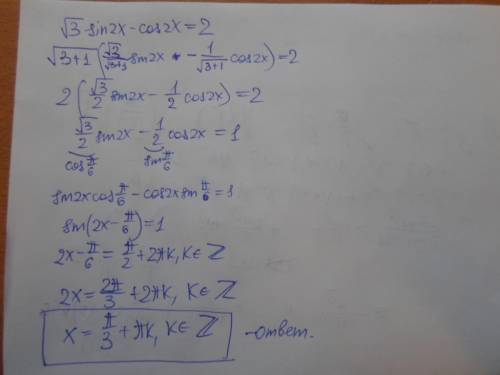 √3 sin2x - cos2x = 2
√3+1 (√3/√3+1 sin2x - 1/√3+1 cos2x) = 2
2 (√3/2 sin2x - 1/2 cos2x) = 2
√3/2 sin2x - 1/2 cos2x = 1
cos π/6 sin π/6
sin2x cos π/6 - cos2x sin π/6 = 1
sin(2x - π/6) = 1
2x - π/6 = π/2 + 2πk, k∈ℤ
2x = 2π/3 + 2πk, k∈ℤ
x = π/3 + πk, k∈ℤ - ответ.